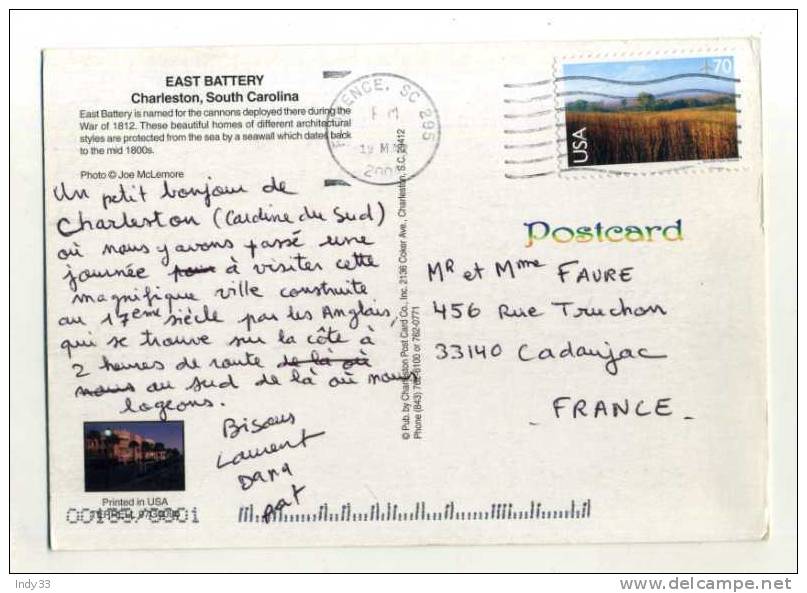 EAST BATTERY
Charleston, South Carolina
East Battery is named for the cannons deployed there during the
War of 1812. These beautiful homes of different architectural
styles are protected from the sea by a seawall which dates back
to the mid 1800s.
Photo © Joe McLemore
Un petit bonjour de
Charleston (Caroline du Sud)
où nous y avons passé une
journée pour à visiter cette
magnifique ville construite
au 17ème siècle par les Anglais,
qui se trouve sur la côte à
2 heures de route de là où
nous au sud de là où nous
logeons.
Bisous
Laurent
Dana
pat
Printed in USA
© Pub. by Charleston Post Card Co., Inc. 2136 Coker Ave., Charleston, S.C. 29412
Phone (843) 762-6100 or 762-0771
FLORENCE, SC 295
PM
19 M
200
70
USA
Postcard
Mr et Mme FAURE
456 Rue Truchon
33140 Cadaujac
- FRANCE -
Indy33
delcampe.net